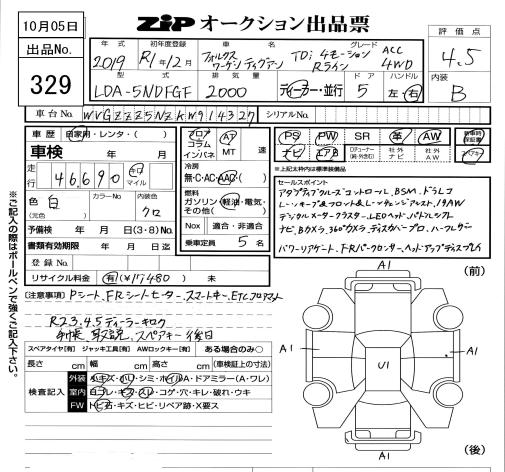 10月05日
ZiP オークション出品票
評価点
4.5
出品No.
329
年式
初年度登録
車名
グレード
2019
R1年12月
フォルクスワーゲン ティグアン
TDi 4モーション Rライン
ACC 4WD
型式
排気量
ドア
ハンドル
LDA-5NDFGF
2000
ディーラー・並行
5
左・右
内装
B
車台No.
WVGZZZ5NZKW914327
シリアルNo.
車歴
自家用・レンタ・( )
車検
年 月
走行
46,690
キロ
マイル
色
白
(元色)
カラーNo.
内装色
クロ
予備検
年 月 日(3・8) No.
書類有効期限
年 月 日迄
登録No.
リサイクル料金
有(¥17480)
未
フロア
コラム
インパネ
AT
MT
速
冷房
無・C・AC・AAC・( )
燃料
ガソリン・軽油・電気・
その他( )
Nox
適合・非適合
乗車定員
5
名
PS
PW
SR
革
AW
ナビ
エアB
社外
ナビ
社外
AW
新車時
保証書
スペアキー
※上記太枠内は標準装備品
セールスポイント
アダプティブクルーズコントロール、BSM、ドラレコ
レーンキープ&フロント&レーンチェンジアシスト、19AW
デジタルメータークラスター、LEDヘッド、パドルシフト
ナビ、Bカメラ、360°カメラ、ディスカバープロ、ハーフレザー
パワーリアゲート、F・Rパークセンサー、ヘッドアップディスプレイ
[注意事項]
Pシート、FRシートヒーター、スマートキー、ETC、フロアマット
R2.3.4.5ディーラーキロク
手帳、取説、スペアキー後日
※ご記入の際はボールペンで強くご記入下さい。
スペアタイヤ[有] ジャッキ工具[有] AWロックキー[有] ある場合のみ○
長さ cm 幅 cm 高さ cm (車検証上の寸法)
検査記入
外装
小キズ・小ヘコ・シミ・ホイルA・ドアミラー(A・ワレ)
室内
白ブレ・キズ・スレ・コゲ・穴・キレ・破れ・ウキ
FW
トビ石・キズ・ヒビ・リペア跡・X要ス
(前)
A1
A1
U1
A1
A1
(後)